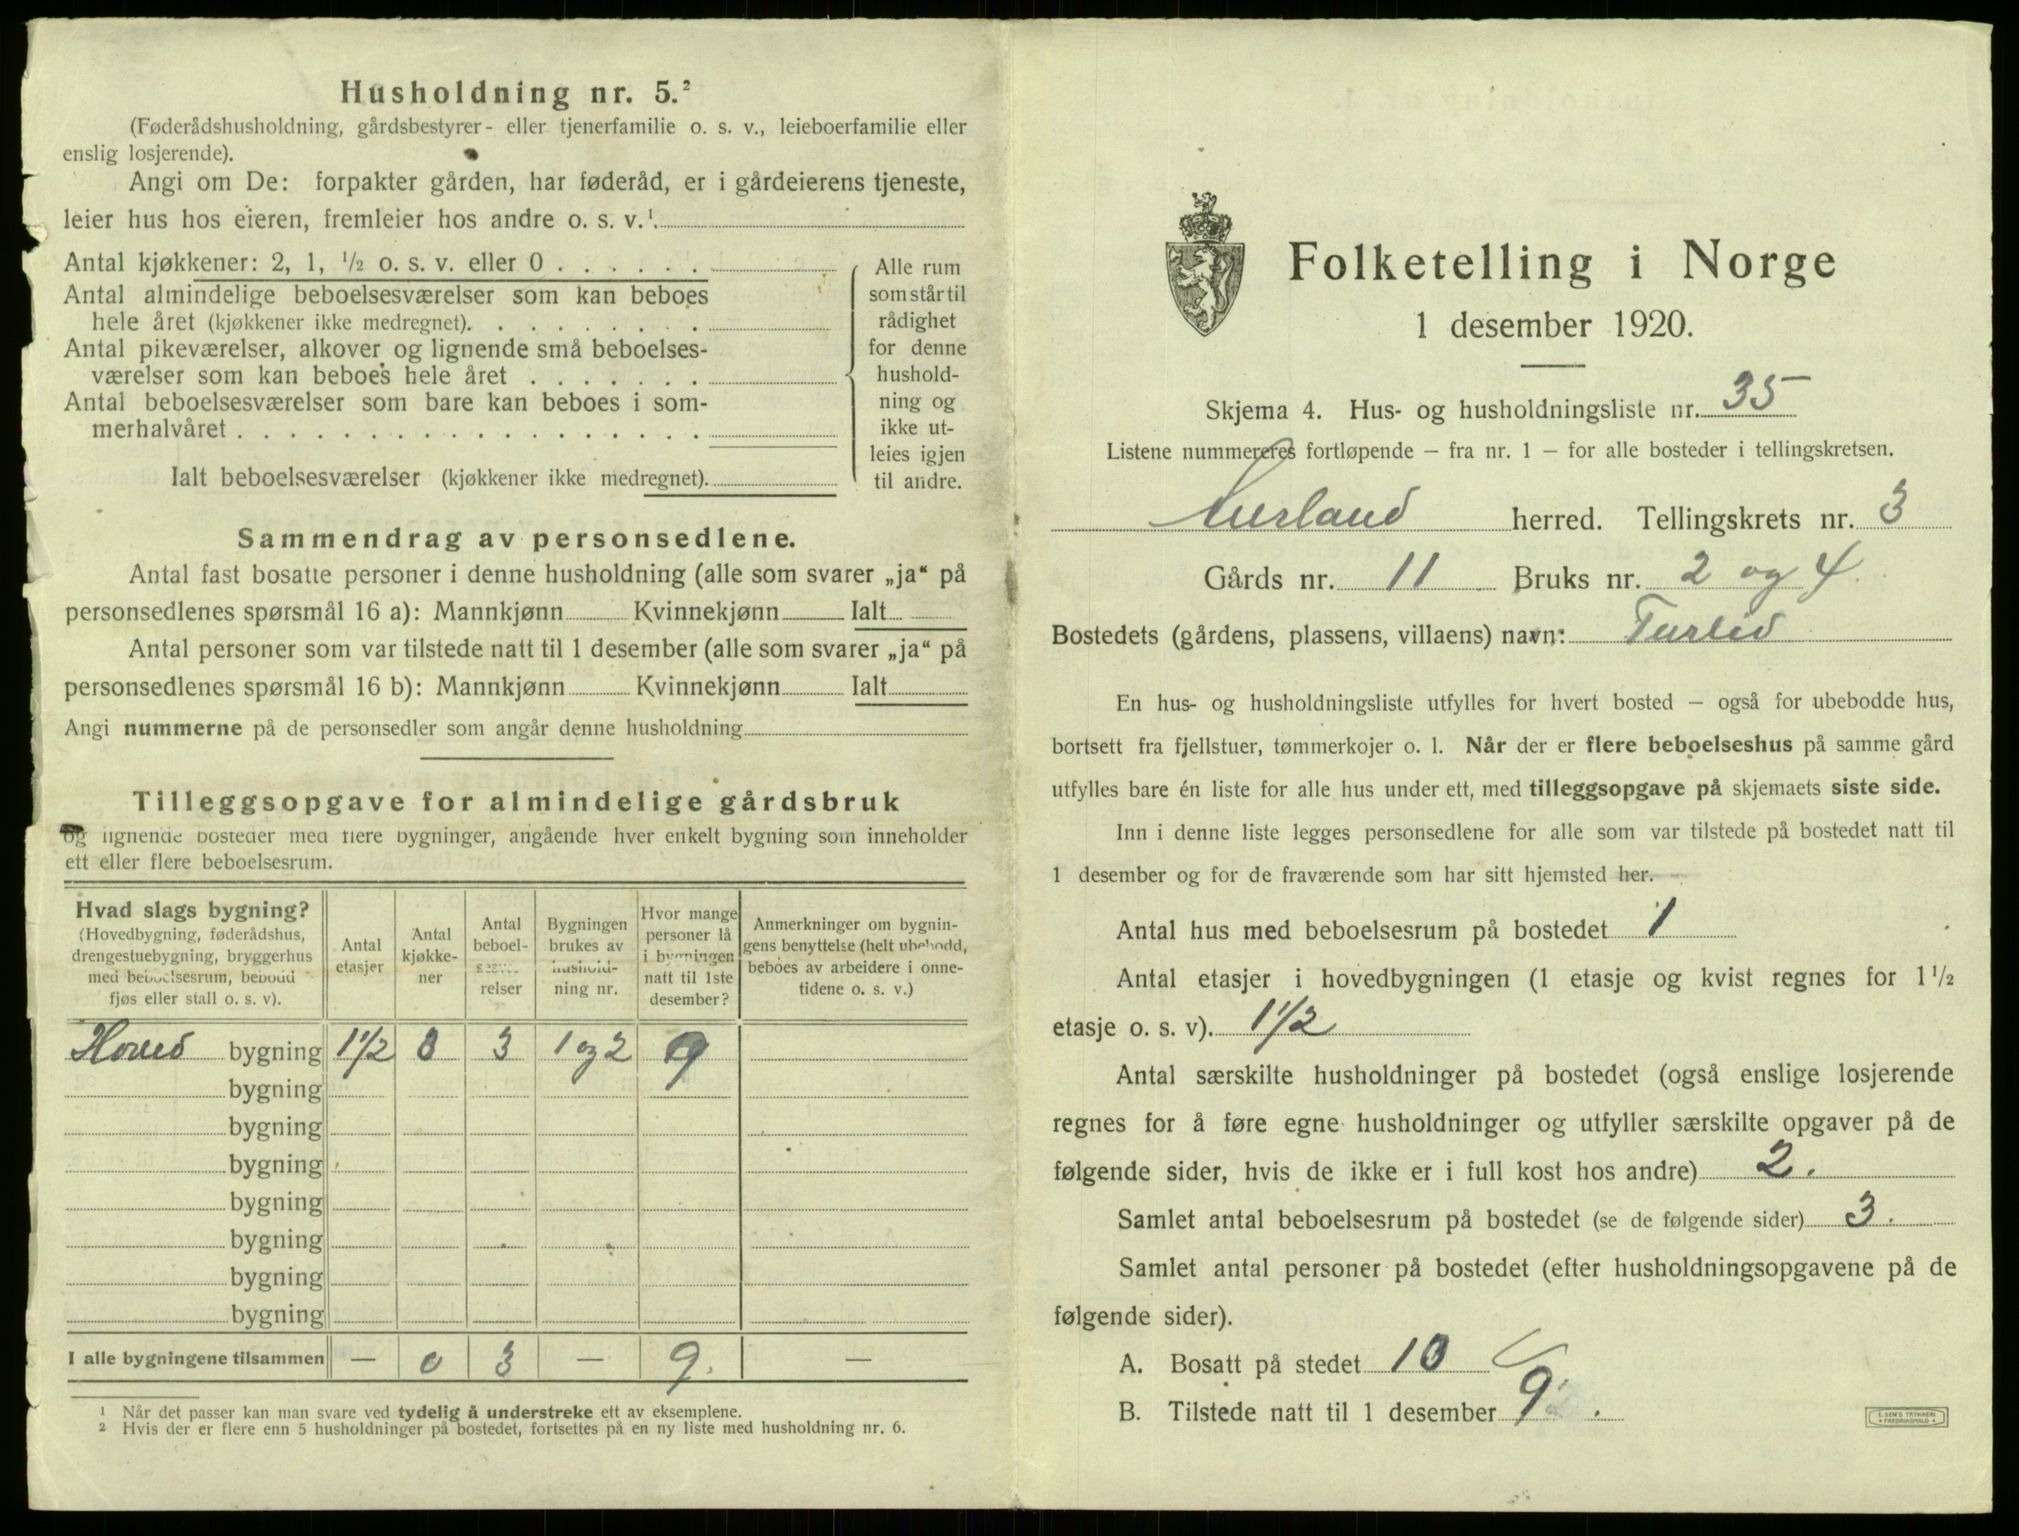 Husholdning nr. 5.²
(Føderådshusholdning, gårdsbestyrer- eller tjenerfamilie o. s. v., leieboerfamilie eller
enslig losjerende).
Angi om De: forpakter gården, har føderåd, er i gårdeierens tjeneste,
leier hus hos eieren, fremleier hos andre o. s. v.¹
Antal kjøkkener: 2, 1, ½ o. s. v. eller 0 . . . . . .
Antal almindelige beboelsesværelser som kan beboes
hele året (kjøkkener ikke medregnet). . . . . . . . .
Antal pikeværelser, alkover og lignende små beboelses-
værelser som kan beboes hele året . . . . . . .
Antal beboelsesværelser som bare kan beboes i som-
merhalvåret . . . . . . . . . . . . . . . . . .
Ialt beboelsesværelser (kjøkkener ikke medregnet).
Alle rum
som står til
rådighet
for denne
hushold-
ning og
ikke ut-
leies igjen
til andre.
Sammendrag av personsedlene.
Antal fast bosatte personer i denne husholdning (alle som svarer „ja“ på
personsedlenes spørsmål 16 a): Mannkjønn Kvinnekjønn Ialt
Antal personer som var tilstede natt til 1 desember (alle som svarer „ja“ på
personsedlenes spørsmål 16 b): Mannkjønn Kvinnekjønn Ialt
Angi nummerne på de personsedler som angår denne husholdning
Tilleggsopgave for almindelige gårdsbruk
og lignende bosteder med flere bygninger, angående hver enkelt bygning som inneholder
ett eller flere beboelsesrum.
Hvad slags bygning?
(Hovedbygning, føderådshus,
drengestuebygning, bryggerhus
med beboelsesrum, bebodd
fjøs eller stall o. s. v).
Antal
etasjer
Antal
kjøkke-
ner
Antal
beboel-
sesvæ-
relser
Bygningen
brukes av
hushold-
ning nr.
Hvor mange
personer lå
i bygningen
natt til 1ste
desember?
Anmerkninger om bygnin-
gens benyttelse (helt ubebodd,
beboes av arbeidere i onne-
tidene o. s. v.)
Hoved bygning 1½ 0 3 1 og 2 9
bygning
bygning
bygning
bygning
bygning
bygning
bygning
I alle bygningene tilsammen — 0 3 — 9. —
¹ Når det passer kan man svare ved tydelig å understreke ett av eksemplene.
² Hvis der er flere enn 5 husholdninger på bostedet, fortsettes på en ny liste med husholdning nr. 6.
Folketelling i Norge
1 desember 1920.
Skjema 4. Hus- og husholdningsliste nr. 35
Listene nummereres fortløpende — fra nr. 1 — for alle bosteder i tellingskretsen.
Aurland herred. Tellingskrets nr. 3
Gårds nr. 11 Bruks nr. 2 og 4.
Bostedets (gårdens, plassens, villaens) navn:
En hus- og husholdningsliste utfylles for hvert bosted — også for ubebodde hus,
bortsett fra fjellstuer, tømmerkojer o. l. Når der er flere beboelseshus på samme gård
utfylles bare én liste for alle hus under ett, med tilleggsopgave på skjemaets siste side.
Inn i denne liste legges personsedlene for alle som var tilstede på bostedet natt til
1 desember og for de fraværende som har sitt hjemsted her.
Antal hus med beboelsesrum på bostedet 1
Antal etasjer i hovedbygningen (1 etasje og kvist regnes for 1½
etasje o. s. v). 1½
Antal særskilte husholdninger på bostedet (også enslige losjerende
regnes for å føre egne husholdninger og utfyller særskilte opgaver på de
følgende sider, hvis de ikke er i full kost hos andre) 2.
Samlet antal beboelsesrum på bostedet (se de følgende sider) 3.
Samlet antal personer på bostedet (efter husholdningsopgavene på de
følgende sider).
A. Bosatt på stedet 10
B. Tilstede natt til 1 desember 9.
E. SEM'S TRYKKERI
FREDRIKSHALD